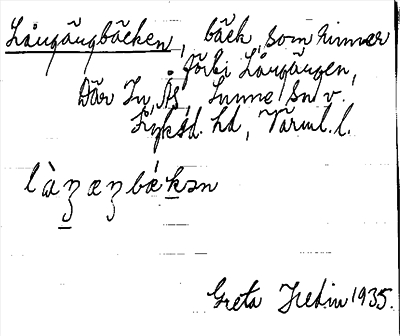 Långängbäcken, bäck, som rinner
förbi Långängen,
Där Ås, Sunne sn v.
Fryksd. hd, Värml. l.
làŋæŋbǽk̠ən
Greta Hedin 1935.